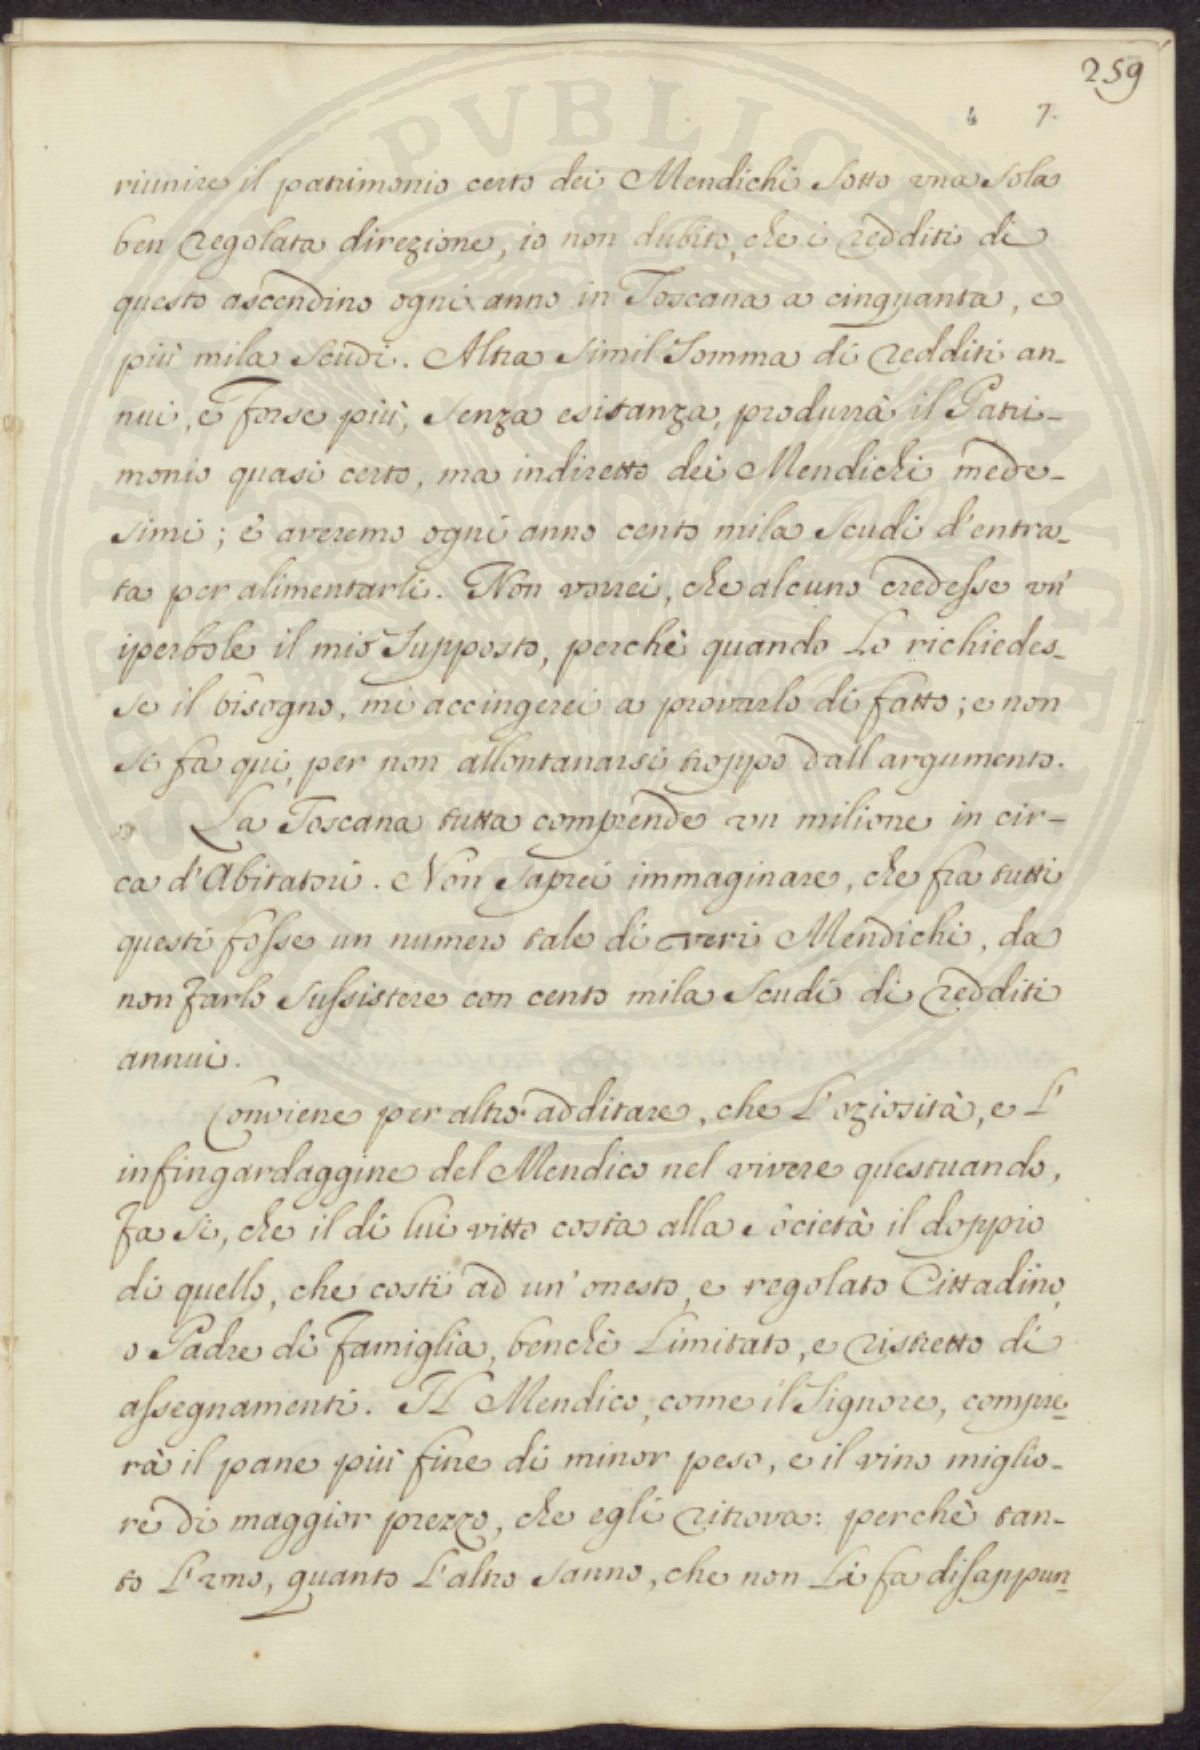 259
4 7.
riunire il patrimonio certo dei Mendichi sotto una sola
ben regolata direzione, io non dubito, che i redditi di
questo ascendino ogni anno in Toscana a cinquanta, e
più mila scudi. Altra simil somma di redditi an-
nui, e forse più, senza esitanza, produrrà il Patri-
monio quasi certo, ma indiretto dei Mendichi mede-
simi; e averemo ogni anno cento mila scudi d'entra-
ta per alimentarli. Non vorrei, che alcuno credesse un'
iperbole il mio supposto, perchè quando lo richiedes-
se il bisogno, mi accingerei a provarlo di fatto; e non
si fa qui, per non allontanarsi troppo dall argumento.
La Toscana tutta comprende un milione in cir-
ca d'Abitatori. Non saprei immaginare, che fra tutti
questi fosse un numero tale di veri Mendichi, da
non farlo sussistere con cento mila scudi di redditi
annui.
Conviene per altro additare, che l'oziosità, e l'
infingardaggine del Mendico nel vivere questuando,
fa sì, che il di lui vitto costa alla società il doppio
di quello, che costi ad un' onesto, e regolato Cittadino,
o Padre di famiglia, benchè limitato, e ristretto di
assegnamenti. Il Mendico, come il Signore, compre-
rà il pane più fine di minor peso, e il vino miglio-
re di maggior prezzo, che egli ritrova: perchè tan-
to l'uno, quanto l'altro sanno, che non li fa disappun-
PUBLICAE